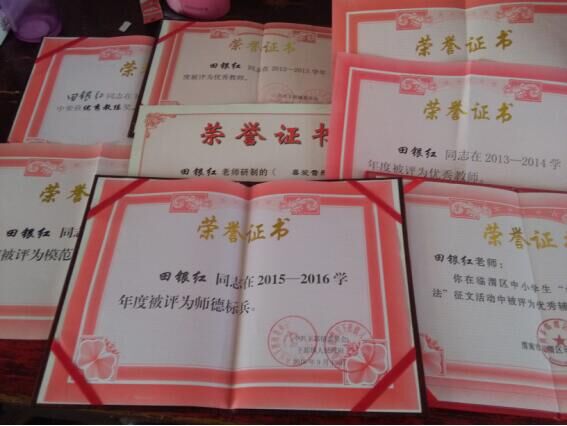 荣
田银红 同志在
中荣获优秀教练奖
荣誉证书
田银红 同志在2012—2013学年
度被评为优秀教师。
荣誉证书
荣誉证书
田银红 同志在2013—2014学
年度被评为优秀教师。
荣誉证书
田银红 老师研制的《
荣
田银红 同志
度被评为模范
荣誉证书
田银红 同志在2015—2016学
年度被评为师德标兵。
荣誉证书
田银红老师：
你在临渭区中小学生“
法”征文活动中被评为优秀辅